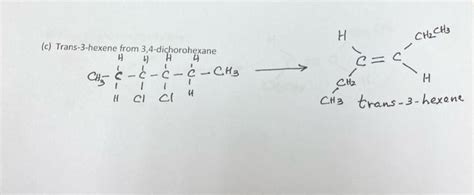 (c) Trans-3-hexene from 3,4-dichorohexane
H H H H
CH3 - C - C - C - C - CH3
H Cl Cl H
H CH2CH3
C = C
CH2 H
CH3 trans-3-hexene